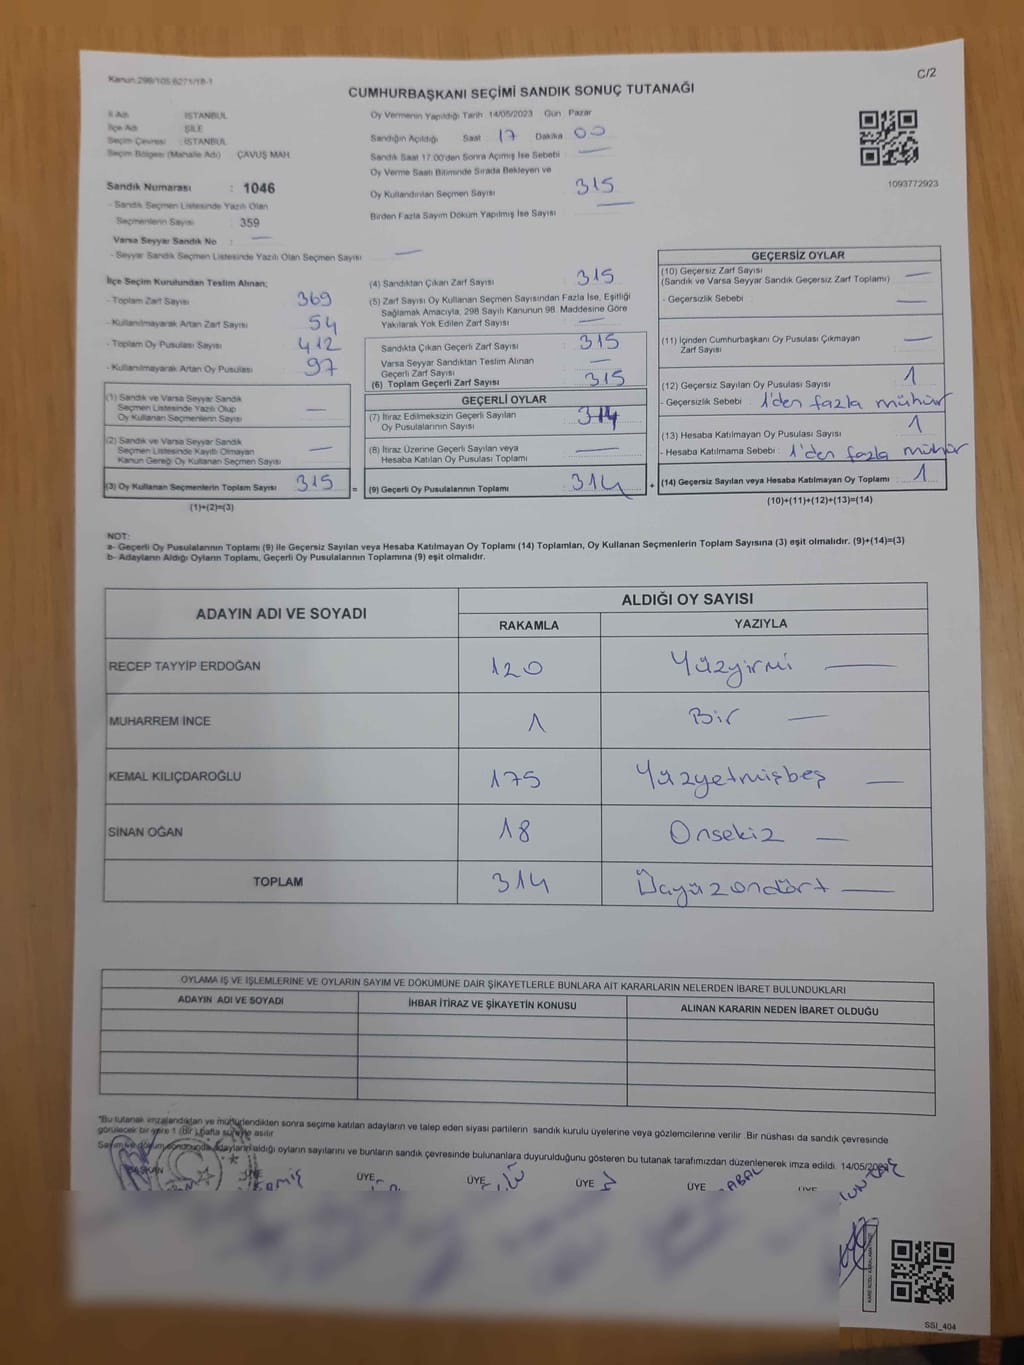 Kanun:298/105 6271/18-1
C/2
CUMHURBAŞKANI SEÇİMİ SANDIK SONUÇ TUTANAĞI
İl Adı : İSTANBUL
İlçe Adı : ŞİLE
Seçim Çevresi : İSTANBUL
Seçim Bölgesi (Mahalle Adı) : ÇAVUŞ MAH.
Sandık Numarası : 1046
- Sandık Seçmen Listesinde Yazılı Olan
Seçmenlerin Sayısı : 359
Varsa Seyyar Sandık No : —
- Seyyar Sandık Seçmen Listesinde Yazılı Olan Seçmen Sayısı : —
Oy Vermenin Yapıldığı Tarih 14/05/2023 Gün Pazar
Sandığın Açıldığı Saat 17 Dakika 00
Sandık Saat 17:00'den Sonra Açımış İse Sebebi : —
Oy Verme Saati Bitiminde Sırada Bekleyen ve
Oy Kullandırılan Seçmen Sayısı : 315
Birden Fazla Sayım Döküm Yapılmış İse Sayısı : —
1093772923
İlçe Seçim Kurulundan Teslim Alınan;
- Toplam Zarf Sayısı : 369
- Kullanılmayarak Artan Zarf Sayısı : 54
- Toplam Oy Pusulası Sayısı : 412
- Kullanılmayarak Artan Oy Pusulası : 97
(1) Sandık ve Varsa Seyyar Sandık
Seçmen Listesinde Yazılı Olup
Oy Kullanan Seçmenlerin Sayısı : —
(2) Sandık ve Varsa Seyyar Sandık
Seçmen Listesinde Kayıtlı Olmayan
Kanun Gereği Oy Kullanan Seçmen Sayısı : —
(3) Oy Kullanan Seçmenlerin Toplam Sayısı : 315 =
(1)+(2)=(3)
(4) Sandıktan Çıkan Zarf Sayısı : 315
(5) Zarf Sayısı Oy Kullanan Seçmen Sayısından Fazla İse, Eşitliği
Sağlamak Amacıyla, 298 Sayılı Kanunun 98. Maddesine Göre
Yakılarak Yok Edilen Zarf Sayısı : —
Sandıkta Çıkan Geçerli Zarf Sayısı : 315
Varsa Seyyar Sandıktan Teslim Alınan
Geçerli Zarf Sayısı : —
(6) Toplam Geçerli Zarf Sayısı : 315
GEÇERLİ OYLAR
(7) İtiraz Edilmeksizin Geçerli Sayılan
Oy Pusulalarının Sayısı : 314
(8) İtiraz Üzerine Geçerli Sayılan veya
Hesaba Katılan Oy Pusulası Toplamı : —
(9) Geçerli Oy Pusulalarının Toplamı : 314 +
GEÇERSİZ OYLAR
(10) Geçersiz Zarf Sayısı
(Sandık ve Varsa Seyyar Sandık Geçersiz Zarf Toplamı) : —
- Geçersizlik Sebebi : —
(11) İçinden Cumhurbaşkanı Oy Pusulası Çıkmayan
Zarf Sayısı : —
(12) Geçersiz Sayılan Oy Pusulası Sayısı : 1
- Geçersizlik Sebebi : 1'den fazla mühür
(13) Hesaba Katılmayan Oy Pusulası Sayısı : 1
- Hesaba Katılmama Sebebi : 1'den fazla mühür
(14) Geçersiz Sayılan veya Hesaba Katılmayan Oy Toplamı : 1
(10)+(11)+(12)+(13)=(14)
NOT:
a- Geçerli Oy Pusulalarının Toplamı (9) ile Geçersiz Sayılan veya Hesaba Katılmayan Oy Toplamı (14) Toplamları, Oy Kullanan Seçmenlerin Toplam Sayısına (3) eşit olmalıdır. (9)+(14)=(3)
b- Adayların Aldığı Oyların Toplamı, Geçerli Oy Pusulalarının Toplamına (9) eşit olmalıdır.
ADAYIN ADI VE SOYADI
ALDIĞI OY SAYISI
RAKAMLA YAZIYLA
RECEP TAYYİP ERDOĞAN 120 Yüzyirmi —
MUHARREM İNCE 1 Bir —
KEMAL KILIÇDAROĞLU 175 Yüzyetmişbeş —
SİNAN OĞAN 18 Onsekiz —
TOPLAM 314 Üçyüzondört —
OYLAMA İŞ VE İŞLEMLERİNE VE OYLARIN SAYIM VE DÖKÜMÜNE DAİR ŞİKAYETLERLE BUNLARA AİT KARARLARIN NELERDEN İBARET BULUNDUKLARI
ADAYIN ADI VE SOYADI İHBAR İTİRAZ VE ŞİKAYETİN KONUSU ALINAN KARARIN NEDEN İBARET OLDUĞU
*Bu tutanak imzalandıktan ve mühürlendikten sonra seçime katılan adayların ve talep eden siyasi partilerin sandık kurulu üyelerine veya gözlemcilerine verilir .Bir nüshası da sandık çevresinde
görülecek bir yere 1 (Bir) hafta süreyle asılır
Sayım ve döküm sonucunda adayların aldığı oyların sayılarını ve bunların sandık çevresinde bulunanlara duyurulduğunu gösteren bu tutanak tarafımızdan düzenlenerek imza edildi. 14/05/2023
BAŞKAN ÜYE ÜYE ÜYE ÜYE ÜYE
SSI_404